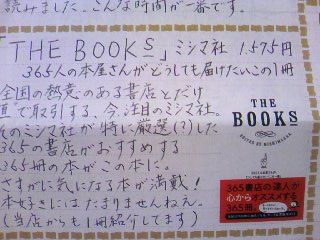 読みました。こんな時間が一番です。
「THE BOOKS」ミシマ社 1,575円
365人の本屋さんがどうしても届けたいこの1冊
全国の熱意のある書店とだけ
直"で取引する、今、注目のミシマ社。
そのミシマ社が特に厳選(?)した
365の書店がおすすめする
365冊の本がこの本に。
さすがに気になる本が満載!
本好きにはたまりませんねえ。
(当店からも1冊紹介してます)
THE
BOOKS
365書店の達人が
心からオススメする
365冊。